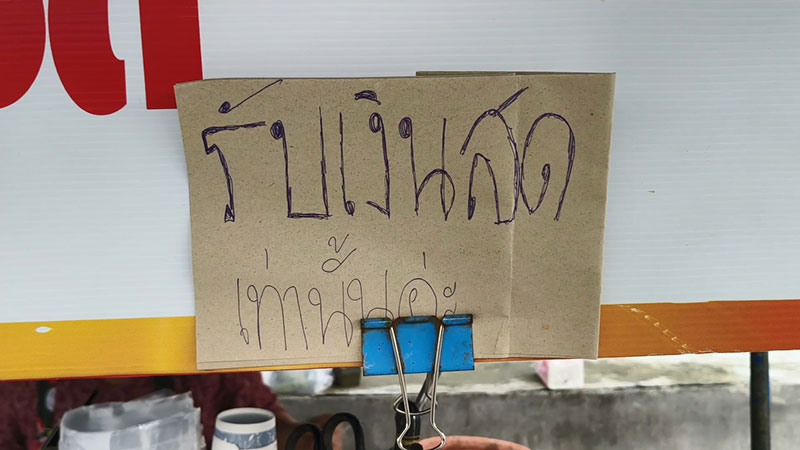 รับเงินสด
เท่านั้นค่ะ